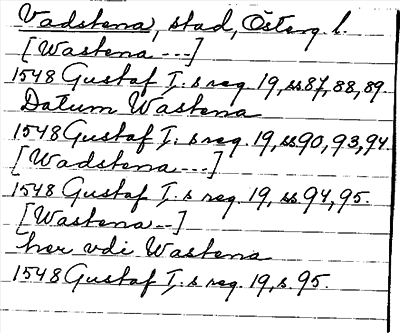 Vadstena, stad, Österg l.
[Wastena ---]
1548 Gustaf I: s reg. 19, ss 87, 88, 89.
Datum Wastena
1548 Gustaf I: s reg. 19, ss 90, 93, 94.
[Wadstena ---]
1548 Gustaf I: s reg. 19, ss 94, 95.
[Wastena --]
her vdi Wastena
1548 Gustaf I: s reg. 19, s. 95.